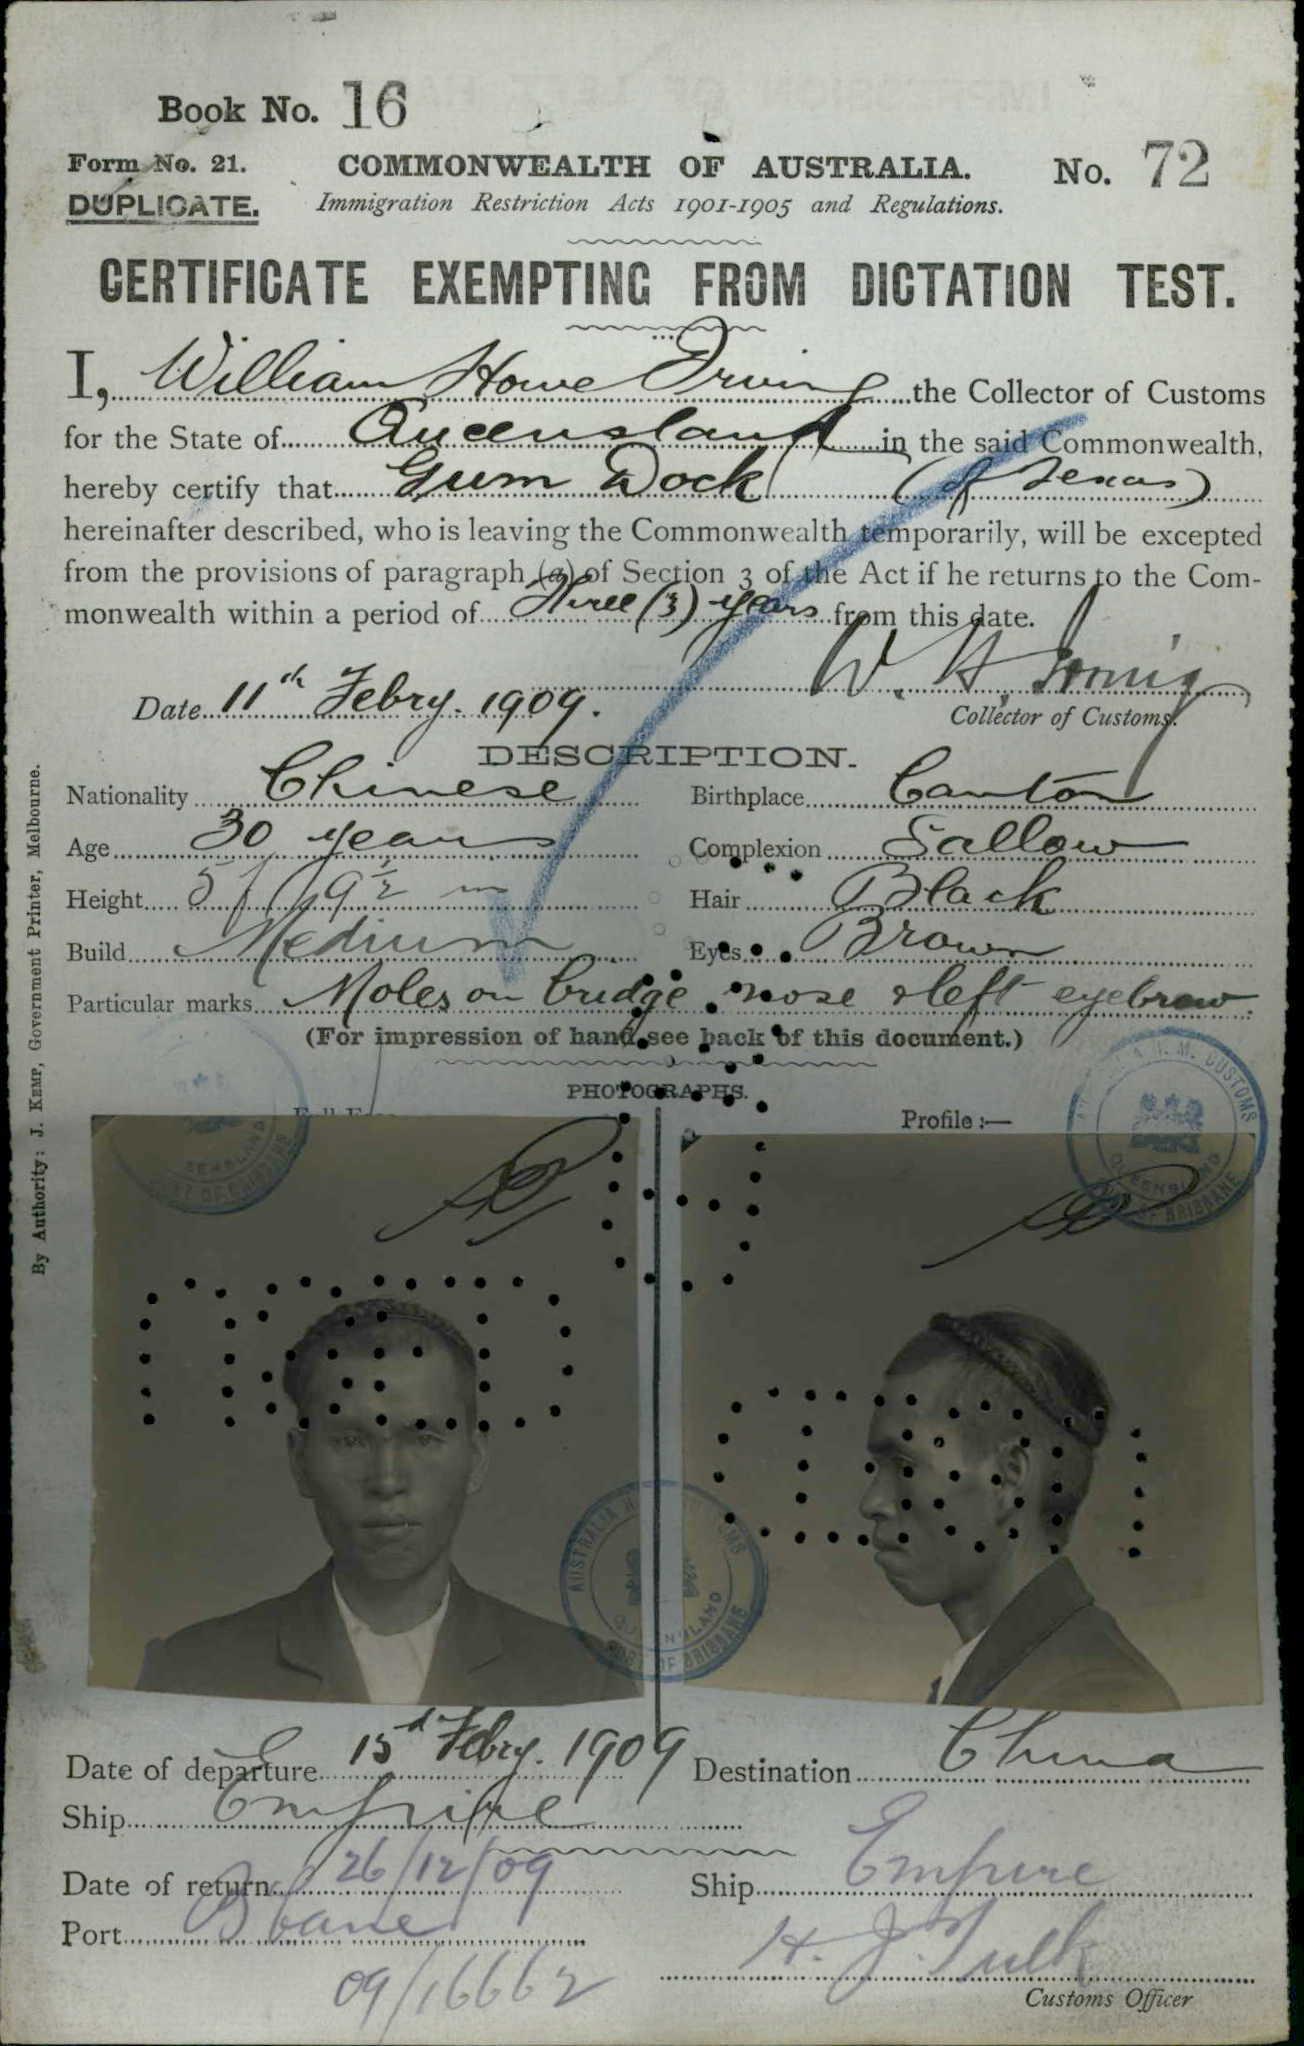 Book No. 16
Form No. 21. COMMONWEALTH OF AUSTRALIA. No. 72
DUPLICATE. Immigration Restriction Acts 1901-1905 and Regulations.
CERTIFICATE EXEMPTING FROM DICTATION TEST.
I, William Howe Irving the Collector of Customs
for the State of Queensland in the said Commonwealth,
hereby certify that Gum Dock (of Texas)
hereinafter described, who is leaving the Commonwealth temporarily, will be excepted
from the provisions of paragraph (a) of Section 3 of the Act if he returns to the Com-
monwealth within a period of Three (3) years from this date.
W. H. Irving
Date 11th Febry. 1909.
Collector of Customs.
DESCRIPTION.
Nationality Chinese Birthplace Canton
Age 30 years Complexion Sallow
Height 5f 9½ in Hair Black
Build Medium Eyes Brown
Particular marks Moles on bridge nose & left eyebrow
(For impression of hand see back of this document.)
PHOTOGRAPHS.
Profile :—
By Authority: J. Kemp, Government Printer, Melbourne.
AUSTRALIA H. M. CUSTOMS
QUEENSLAND
PORT OF BRISBANE
QUEENSLAND
PORT OF BRISBANE
AUSTRALIA H. M. CUSTOMS
QUEENSLAND
PORT OF BRISBANE
Date of departure 15th Febry. 1909 Destination China
Ship Empire
Date of return 26/12/09 Ship Empire
Port Bbane H. J. Tulk
09/16662
Customs Officer